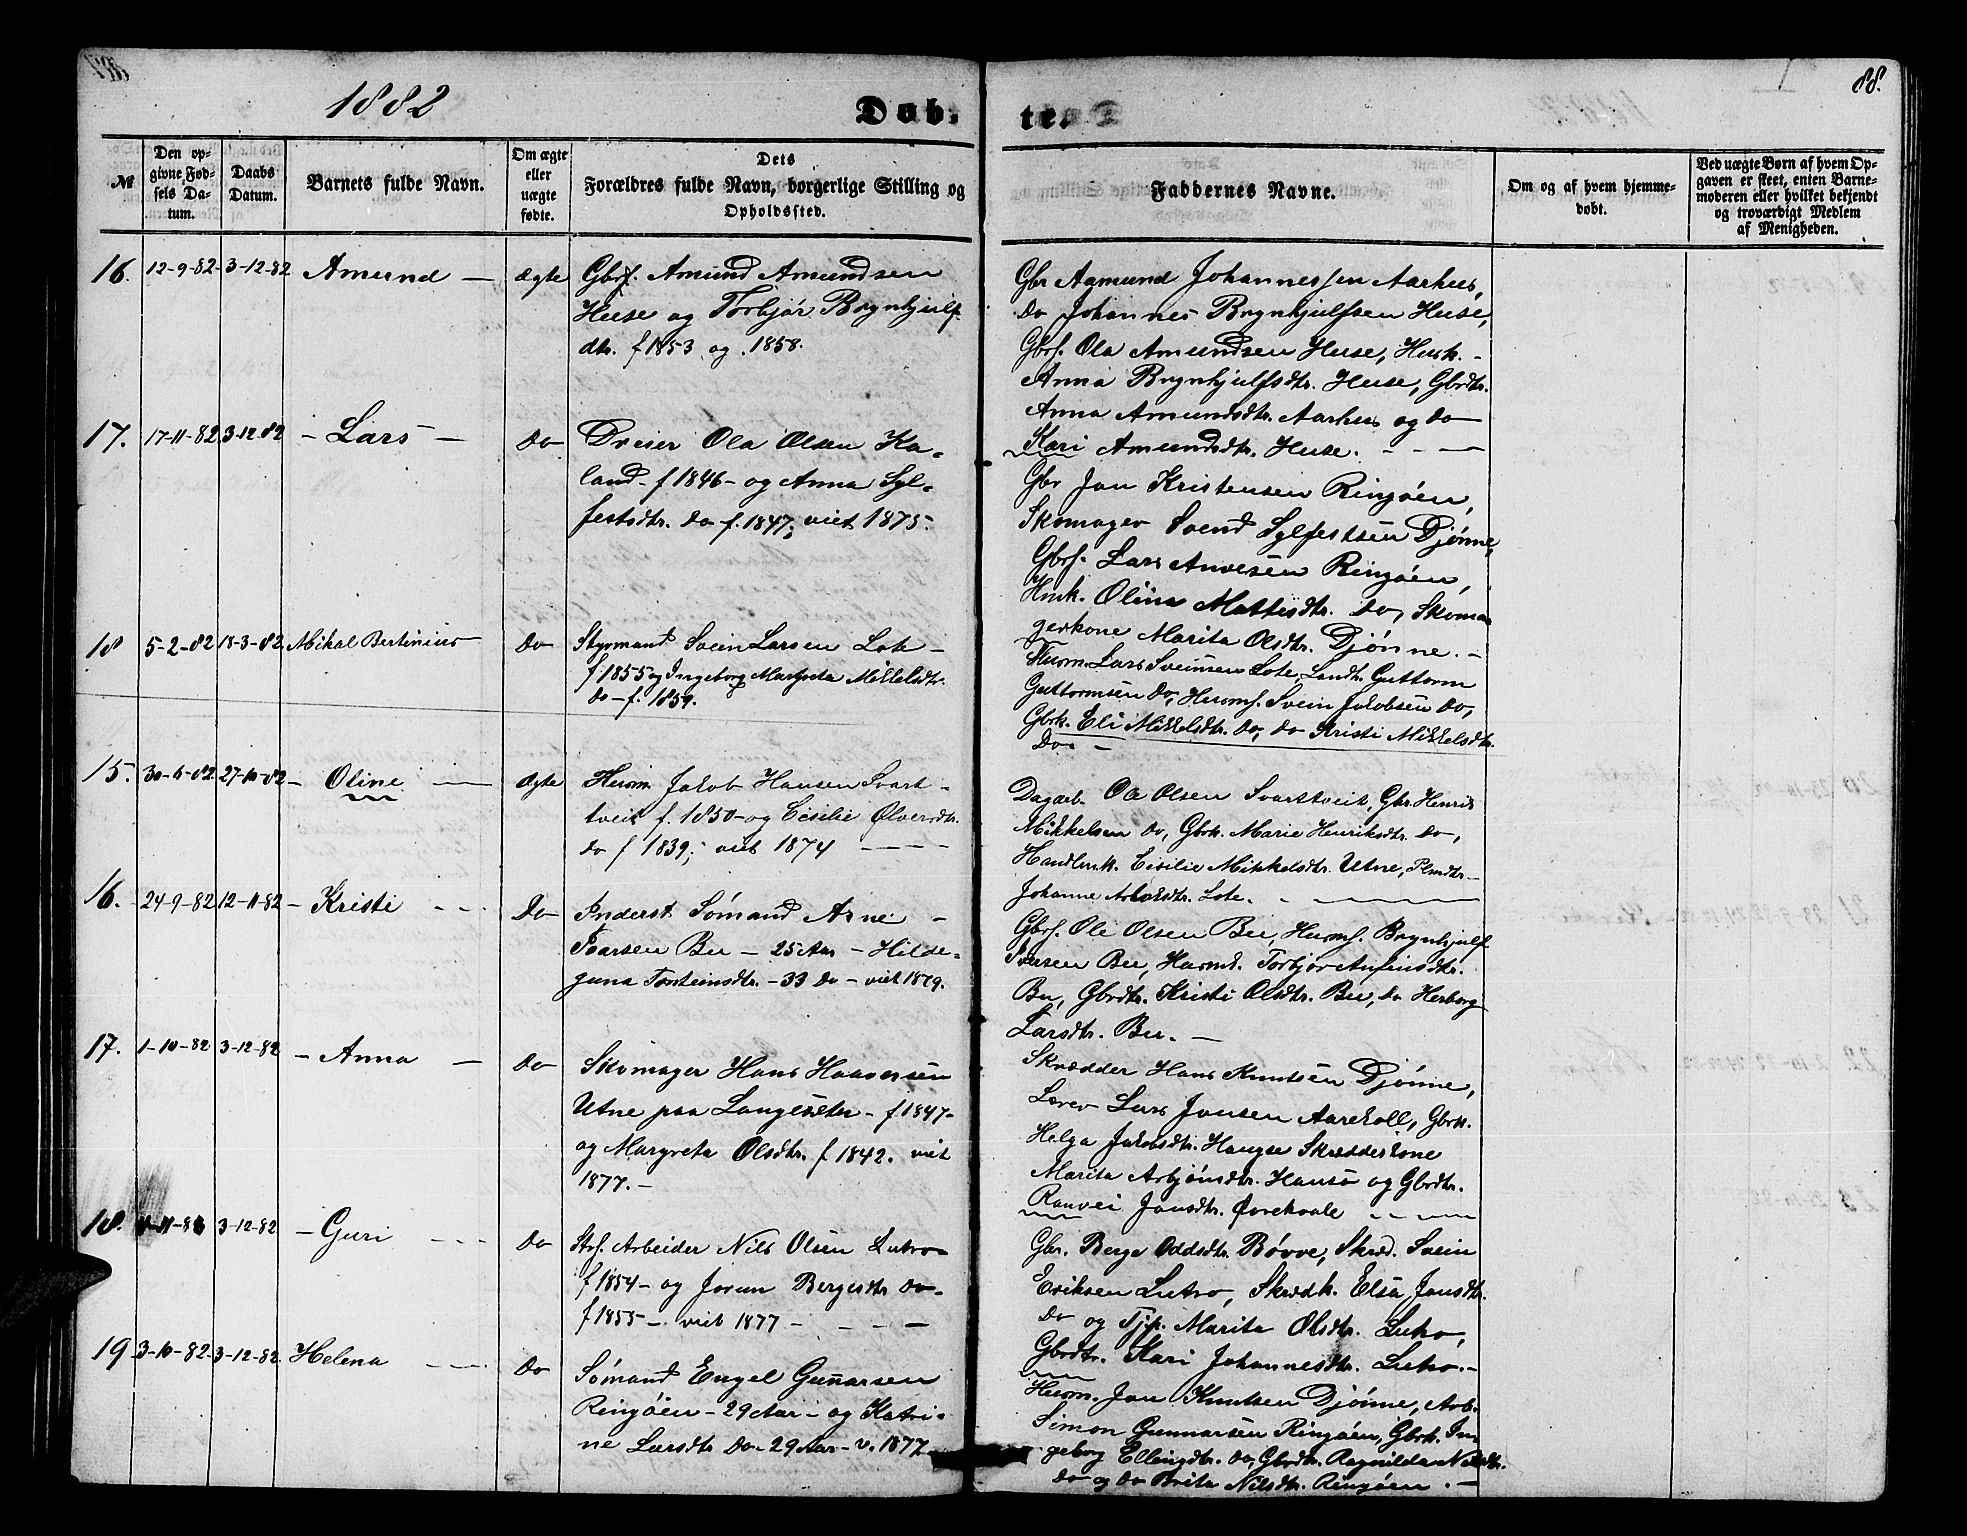 1882
Døb-
te.
88.
№
Den op-
givne Fød-
sels Da-
tum.
Daabs
Datum.
Barnets fulde Navn.
Om ægte
eller
uægte
fødte.
Dets
Forældres fulde Navn, borgerlige Stilling og
Opholdssted.
Faddernes Navne.
Om og af hvem hjemme-
døbt.
Ved uægte Børn af hvem Op-
gaven er skeet, enten Barne-
moderen eller hvilket bekjendt
og troværdigt Medlem
af Menigheden.
16. 12-9-82 3-12-82 Amund - ægte
Gbrf. Amund Amundsen
Huse og Torbjør Brynhjulf-
dtr. f 1853 og 1858.
Gbr Aamund Johannessen Aarhus,
do Johannes Brynhjulfsen Huse,
Gbrf. Ola Amundsen Huse, Husk.-
Anna Brynhjulfsdtr. Huse, Gbrdtr.
Anna Amundsdtr. Aarhus og do
Kari Amundsdtr. Huse. - - -
17. 17-11-82 3-12-82 - Lars - do
Dreier Ola Olsen Ka-
land - f 1846 - og Anna Syl-
festsdtr. do f. 1847; viet 1875.
Gbr Jon Kristensen Ringøen,
Skomager Svend Sylfestsen Djønne,
Gbrf. Lars Arnesen Ringøen,
Husk. Olina Mattisdtr. do, Skoma-
gerkone Marita Olsdtr. Djønne. -
18 5-2-82 18-3-82 Mikal Bertinius do
Styrmand Svein Larsen Lote -
f 1855 og Ingeborg Margreta Mikkelsdtr.
do - f. 1859.
Husm. Lars Sveinsen Lote, Landh. Guttorm
Guttormsen do, Husmf. Svein Jakobsen do,
Gbrk. Eli Mikkelsdtr. do, do Kristi Mikkelsdtr.
do -
15. 30-6-82 27-10-82 - Oline - ægte
Husm. Jakob Hansen Svart-
tveit f. 1850 - og Cisilie Ølversdtr.
do f 1839; viet 1874 - - -
Dagarb. Ole Olsen Svarttveit, Gbr. Henrik
Mikkelsen do, Gbrk. Marie Henriksdtr. do,
Handlmk. Cisilie Mikkelsdtr. Utne,
Johanne Lote. -
16. 24-9-82 12-11-82 - Kristi - - do
Inderst Sømand Arne -
Ivarsen Bu - 25 Aar - Hilde-
guna Torsteinsdtr. - 33 do - viet 1879.
Gbrf. Ole Olsen Bu, Husmf. Brynhjulf
Iversen Bu, Husmk. Torbjør Anfinsdtr.
Bu, Gbrdtr. Kristi Olsdtr. Bu, do Herborg
Larsdtr. Bu. -
17. 1-10-82 3-12-82 - Anna - do
Skomager Hans Haaversen
Utne paa Langeseter - f 1847-
og Margreta Olsdtr. f 1842. viet
1877. -
Skrædder Hans Knutsen Djønne,
Lærer Lars Jonsen Aarekoll, Gbrk.
Helga Jakobsdtr. Hauge Skrædderkone
Marita Arbjønsdtr. Hauso og Gbrdtr.
Ranvei Jonsdtr. Øvrekvale - - -
18. 3-12-82 - Guri - - do
Strf. Arbeider Nils Olsen Lutro-
f 1854 - og Jorun Bergesdtr. do-
f 1855 - viet 1877 - - - -
Gbr. Berge Oddsdtr. Bøvve, Skræd. Svein
Eriksen Lutro, Skrædk. Elsa Jonsdtr.
do og Tjp. Marita Olsdtr. Lutro,
Gbrdtr. Kari Johannesdtr. Lutro. -
19 3-10-82 3-12-82 Helena - - do
Sømand Engel Gunnarsen
Ringøen - 29 Aar - og Katri-
ne Larsdtr do - 29 Aar - v. 1877
Husm. Jon Knutsen Djønne, Arb.
Simon Gunnarsen Ringøen, Gbrk. In-
geborg Ellingdtr. do, Gbrdtr. Ragnilda Nilsdtr.
do og do Brita Nilsdtr. Ringøen. -